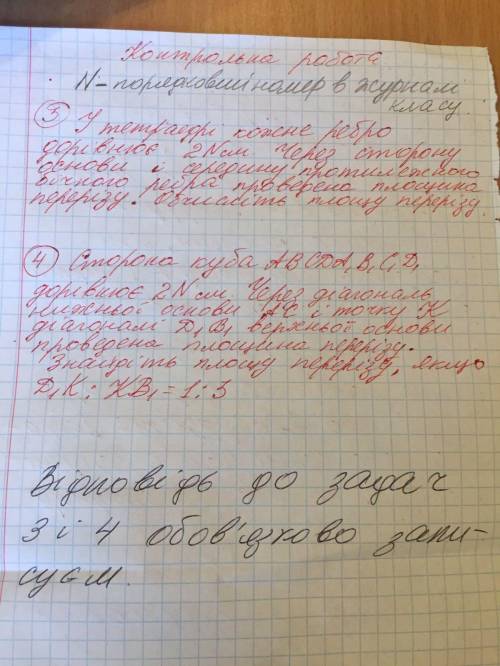 Контрольна робота
N - порядковий номер в журналі
класу.
3 У тетраедрі кожне ребро
дорівнює 2N см. Через сторону
основи і середину протилежного
бічного ребра проведена площина
перерізу. Обчисліть площу перерізу.
4 Сторона куба ABCDA₁B₁C₁D₁
дорівнює 2N см. Через діагональ
нижньої основи AC і точку K
діагоналі D₁B₁ верхньої основи
проведена площина перерізу.
Знайдіть площу перерізу, якщо
D₁K : KB₁ = 1 : 3
Відповідь до задач
3 і 4 обов'язково запи-
суєм.